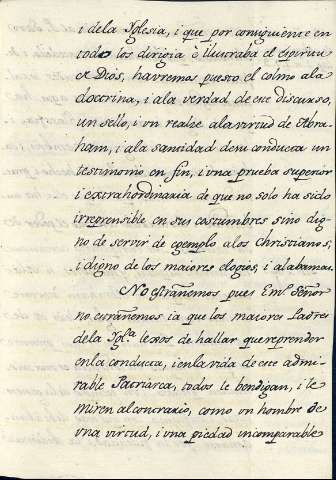 i dela Yglesia, i que por consiguiente en
todos los dirigia è ilustraba el espiritu
de Dios, havremos puesto el colmo ala
doctrina, i ala verdad de este discurso
un sello, i vn realze ala virtud de Abra-
ham, i ala santidad desu conducta un
testimonio en fin, i vna prueba superior
i extrahordinaria de que no solo ha sido
irreprensible en sus costumbres sino dig-
no de servir de egemplo alos Christianos,
i digno de los maiores elogios, i alabanzas.
No estrañemos pues Em.º Señor
no estrañemos ia que los maiores Padres
dela Ygl.ª lexos de hallar que reprender
enla conducta, i enla vida de este admi-
rable Patriarca, todos le bendigan, i le
miren al contrario, como vn hombre de
vna virtud, i vna piedad incomparable